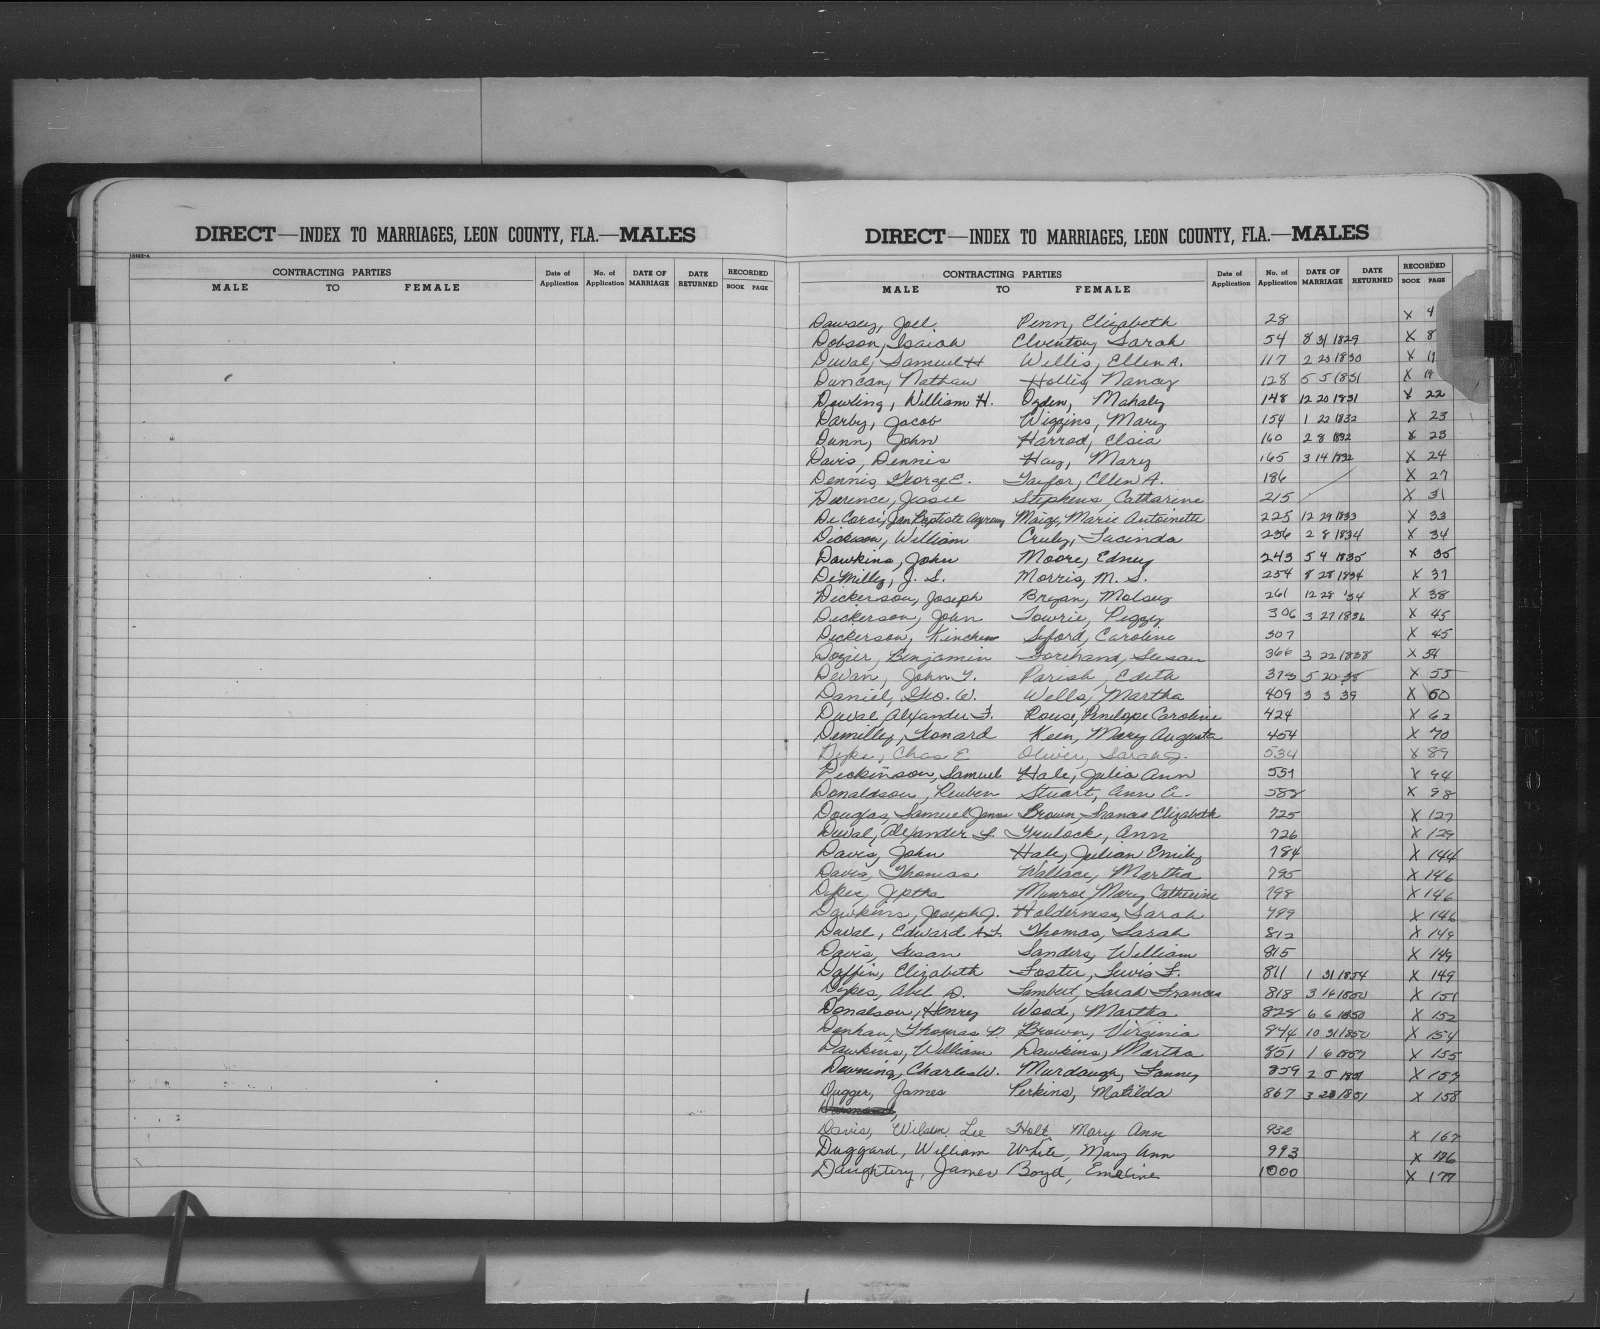 DIRECT—INDEX TO MARRIAGES, LEON COUNTY, FLA.—MALES
CONTRACTING PARTIES Date of Application No. of Application DATE OF MARRIAGE DATE RETURNED RECORDED
MALE TO FEMALE BOOK PAGE
DIRECT—INDEX TO MARRIAGES, LEON COUNTY, FLA.—MALES
CONTRACTING PARTIES Date of Application No. of Application DATE OF MARRIAGE DATE RETURNED RECORDED
MALE TO FEMALE BOOK PAGE
Dawsey, Joel Penn, Elizabeth 28 X 4
Dobson, Isaiah Elventon, Sarah 54 8 31 1829 X 8
Duval, Samuel H Willis, Ellen A. 117 2 23 1830 X
Duncan, Nathan Hollis, Nancy 128 5 5 1831 X
Dowling, William H. Ogden, Mahaly 148 12 20 1831 X 22
Darby, Jacob Wiggins, Mary 154 1 22 1832 X 23
Dunn, John Harrod, Elsia 160 2 8 1832 X 23
Davis, Dennis Hay, Mary 165 3 14 1832 X 24
Dennis, George E. Taylor, Ellen A. 186 X 27
Dearence, Jessie Stephens, Catharine 215 X 31
De Corsi, Jan Baptiste Maige, Marie Antoinette 225 12 29 1833 X 33
Dickison, William Cruly, Lucinda 236 2 8 1834 X 34
Dawkins, John Moore, Edney 243 5 4 1835 X 35
DeMilly, J. S. Morris, M. S. 254 8 28 1834 X 37
Dickerson, Joseph Bryan, Molsey 261 12 28 '34 X 38
Dickerson, John Lowrie, Peggy 306 3 27 1836 X 45
Dickerson, Kinchen Siford, Caroline 307 X 45
Dozier, Benjamin Forehand, Susan 366 3 22 1838 X 54
Devan, John Y. Parish, Edith 373 5 20 38 X 55
Daniel, Geo. W. Wells, Martha 409 3 3 39 X 60
Duval, Alexander F. Rouse, Penelope Caroline 424 X 62
Demilly, Leonard Keen, Mary Augusta 454 X 70
Dyke, Chas E Oliver, Sarah J. 534 X 89
Dickinson, Samuel Hale, Julia Ann 551 X 94
Donaldson, Reuben Stuart, Ann E. 588 X 98
Douglas, Samuel James Brown, Frances Elizabeth 725 X 127
Duval, Alexander F Trulock, Ann 726 X 129
Davis, John Hale, Julian Emily 784 X 144
Davis, Thomas Wallace, Martha 795 X 146
Dykes, Jeptha Munroe, Mary Catherine 798 X 146
Dawkins, Joseph J. Holderness, Sarah 799 X 146
Duval, Edward Thomas, Sarah 812 X 149
Davis, Susan Sanders, William 815 X 149
Daffin, Elizabeth Foster, Lewis F. 811 1 31 1854 X 149
Dykes, Abel D. Lambert, Sarah Frances 818 3 14 1850 X 151
Donalson, Henry Wood, Martha 828 6 6 1850 X 152
Denham, Thomas Brown, Virginia 844 10 31 1850 X 154
Dawkins, William Dawkins, Martha 851 1 6 X 155
Downing, Charles W. Murdaugh, Fanny 859 2 5 1851 X 157
Dugger, James Perkins, Matilda 867 3 20 1851 X 158
Davis, Wilson Lee Holt Mary Ann 932 X 167
Duggard, William White, Mary Ann 993 X 176
Daughtery, James Boyd, Emeline 1000 X 177